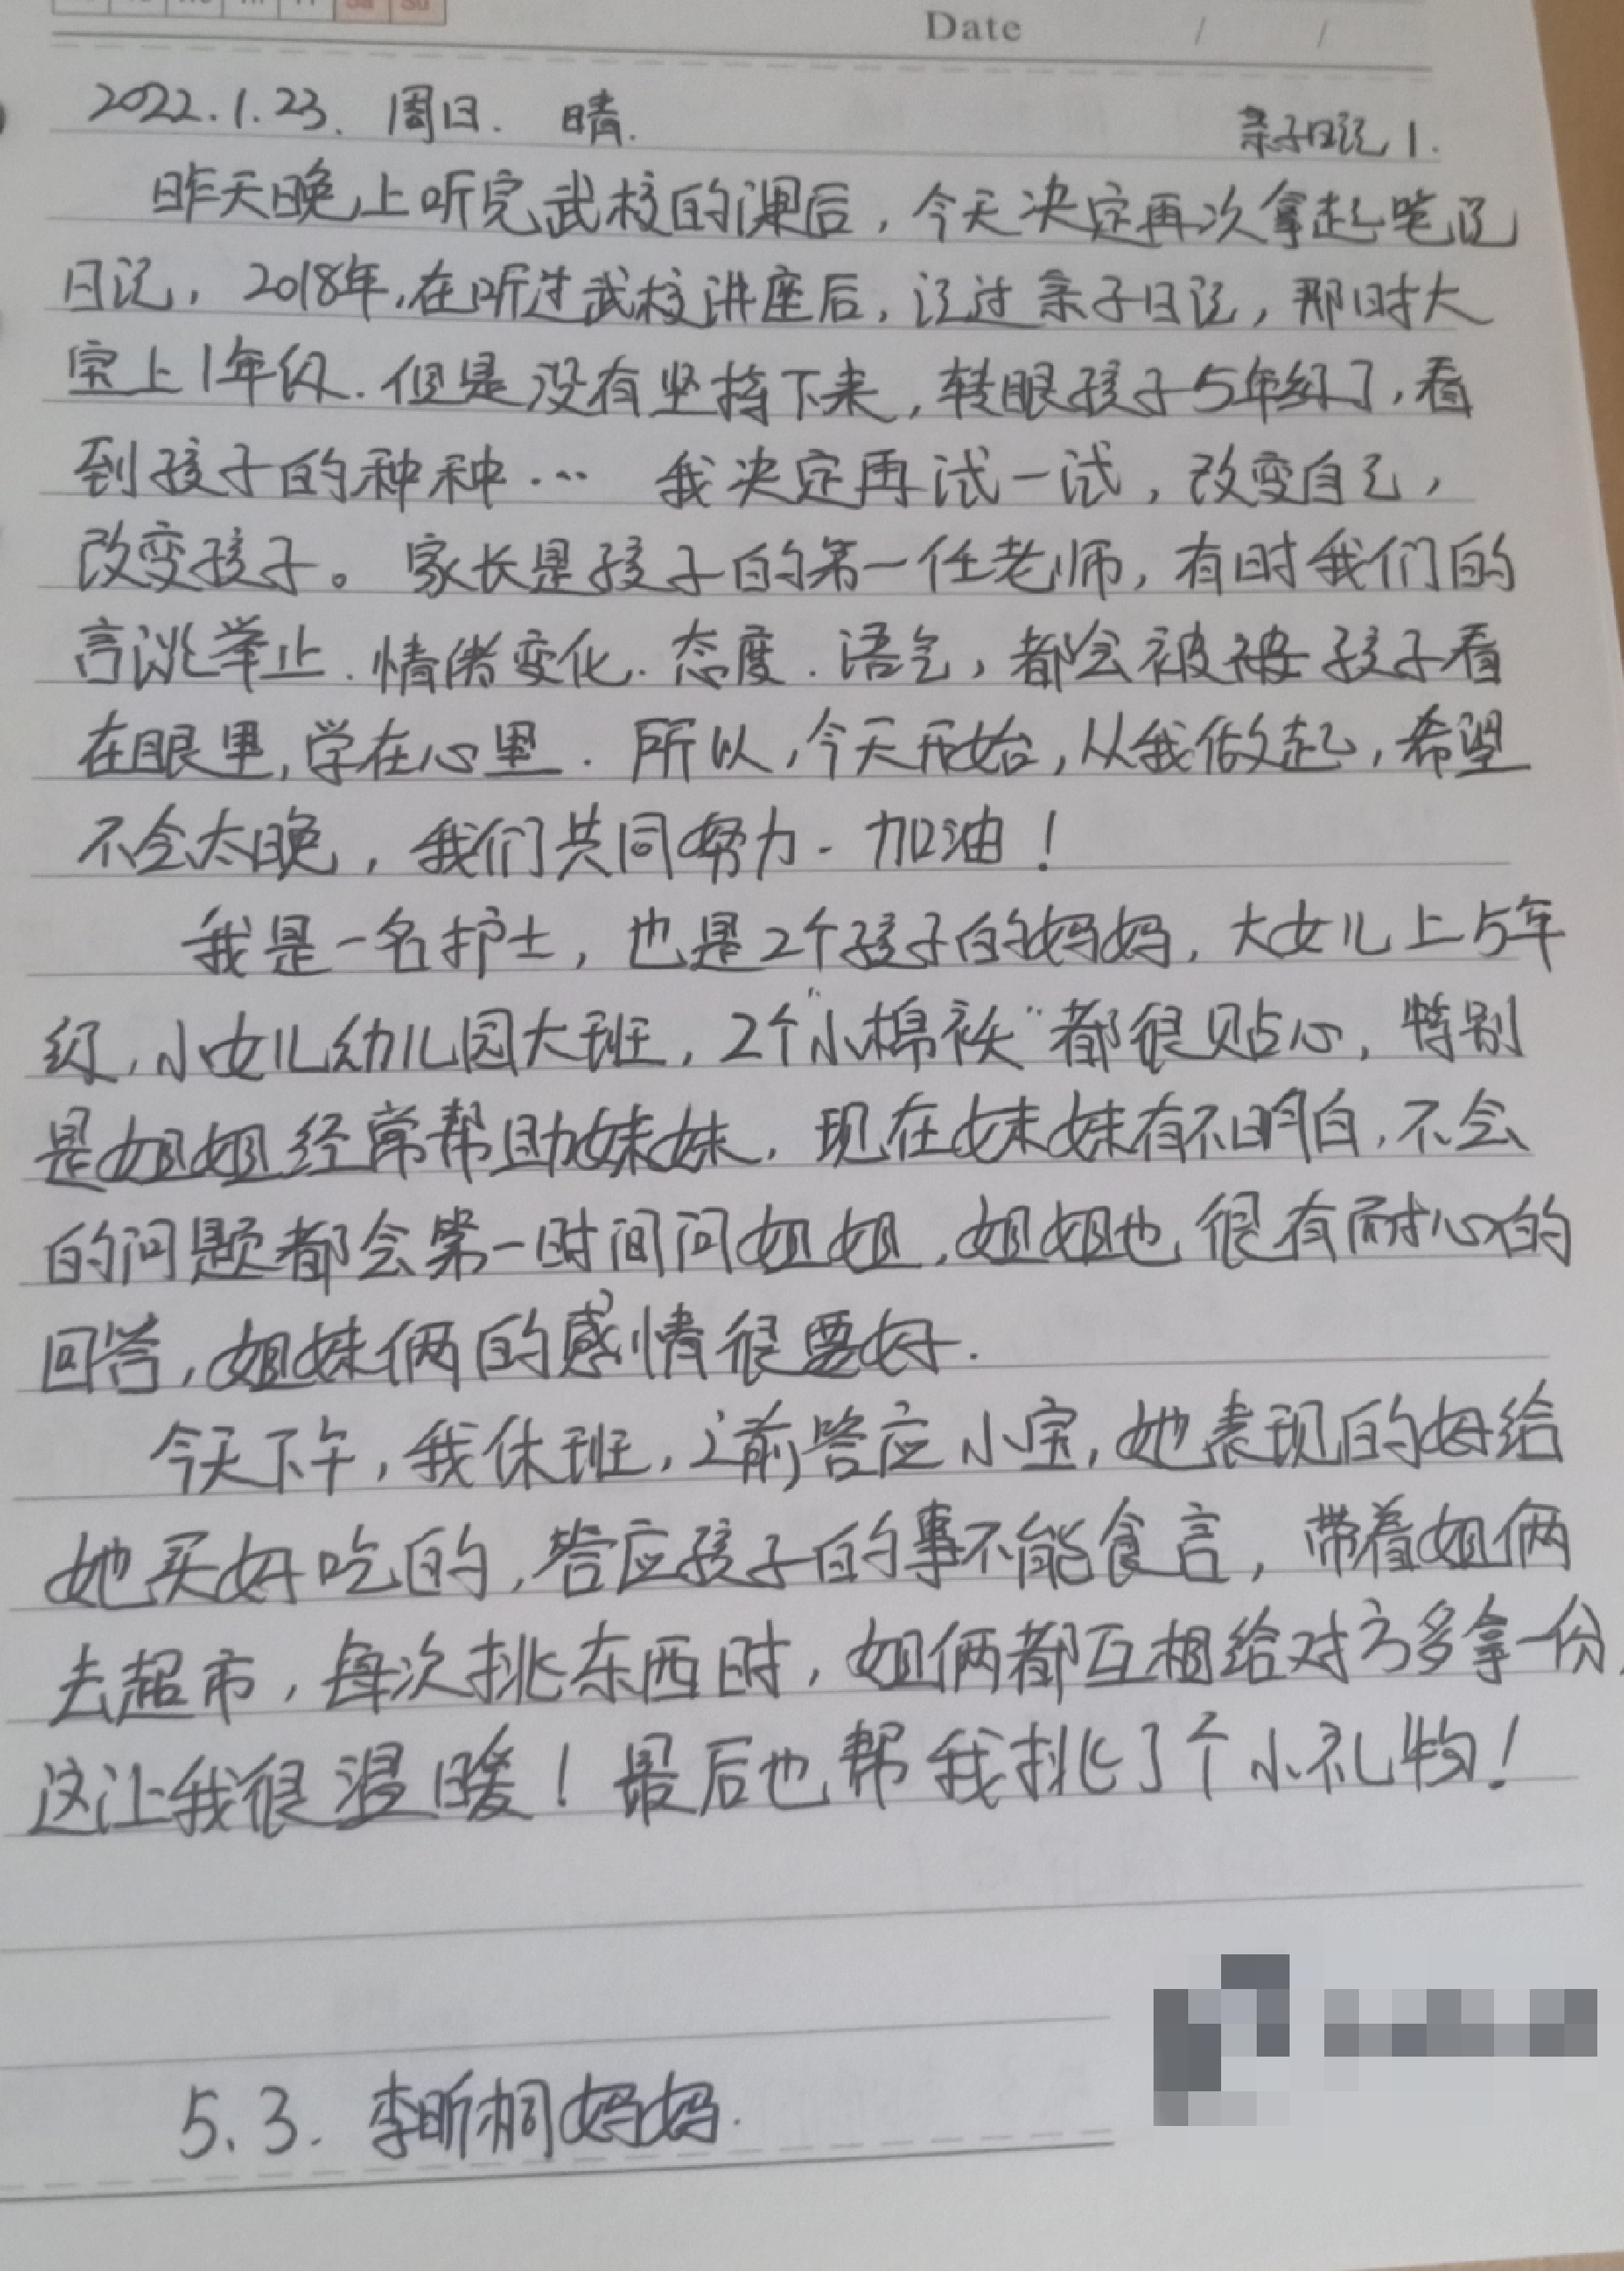 Sa Su
Date / /
2022.1.23. 周日. 晴.
亲子日记 1.
昨天晚上听完武校的课后，今天决定再次拿起笔记
日记，2018年，在听过武校讲座后，记过亲子日记，那时大
宝上1年级.但是没有坚持下来，转眼孩子5年级了，看
到孩子的种种… 我决定再试一试，改变自己，
改变孩子。家长是孩子的第一任老师，有时我们的
言谈举止.情绪变化.态度.语气，都会被被孩子看
在眼里，学在心里.所以，今天开始，从我做起，希望
不会太晚，我们共同努力.加油！
我是一名护士，也是2个孩子的妈妈，大女儿上5年
级，小女儿幼儿园大班，2个“小棉袄”都很贴心，特别
是姐姐经常帮助妹妹.现在妹妹有不明白，不会
的问题都会第一时间问姐姐，姐姐也很有耐心的
回答，姐妹俩的感情很要好.
今天下午，我休班，之前答应小宝，她表现的好给
她买好吃的，答应孩子的事不能食言，带着姐俩
去超市，每次挑东西时，姐俩都互相给对方多拿一份，
这让我很温暖！最后也帮我挑了个小礼物！
5.3. 李昕桐妈妈.